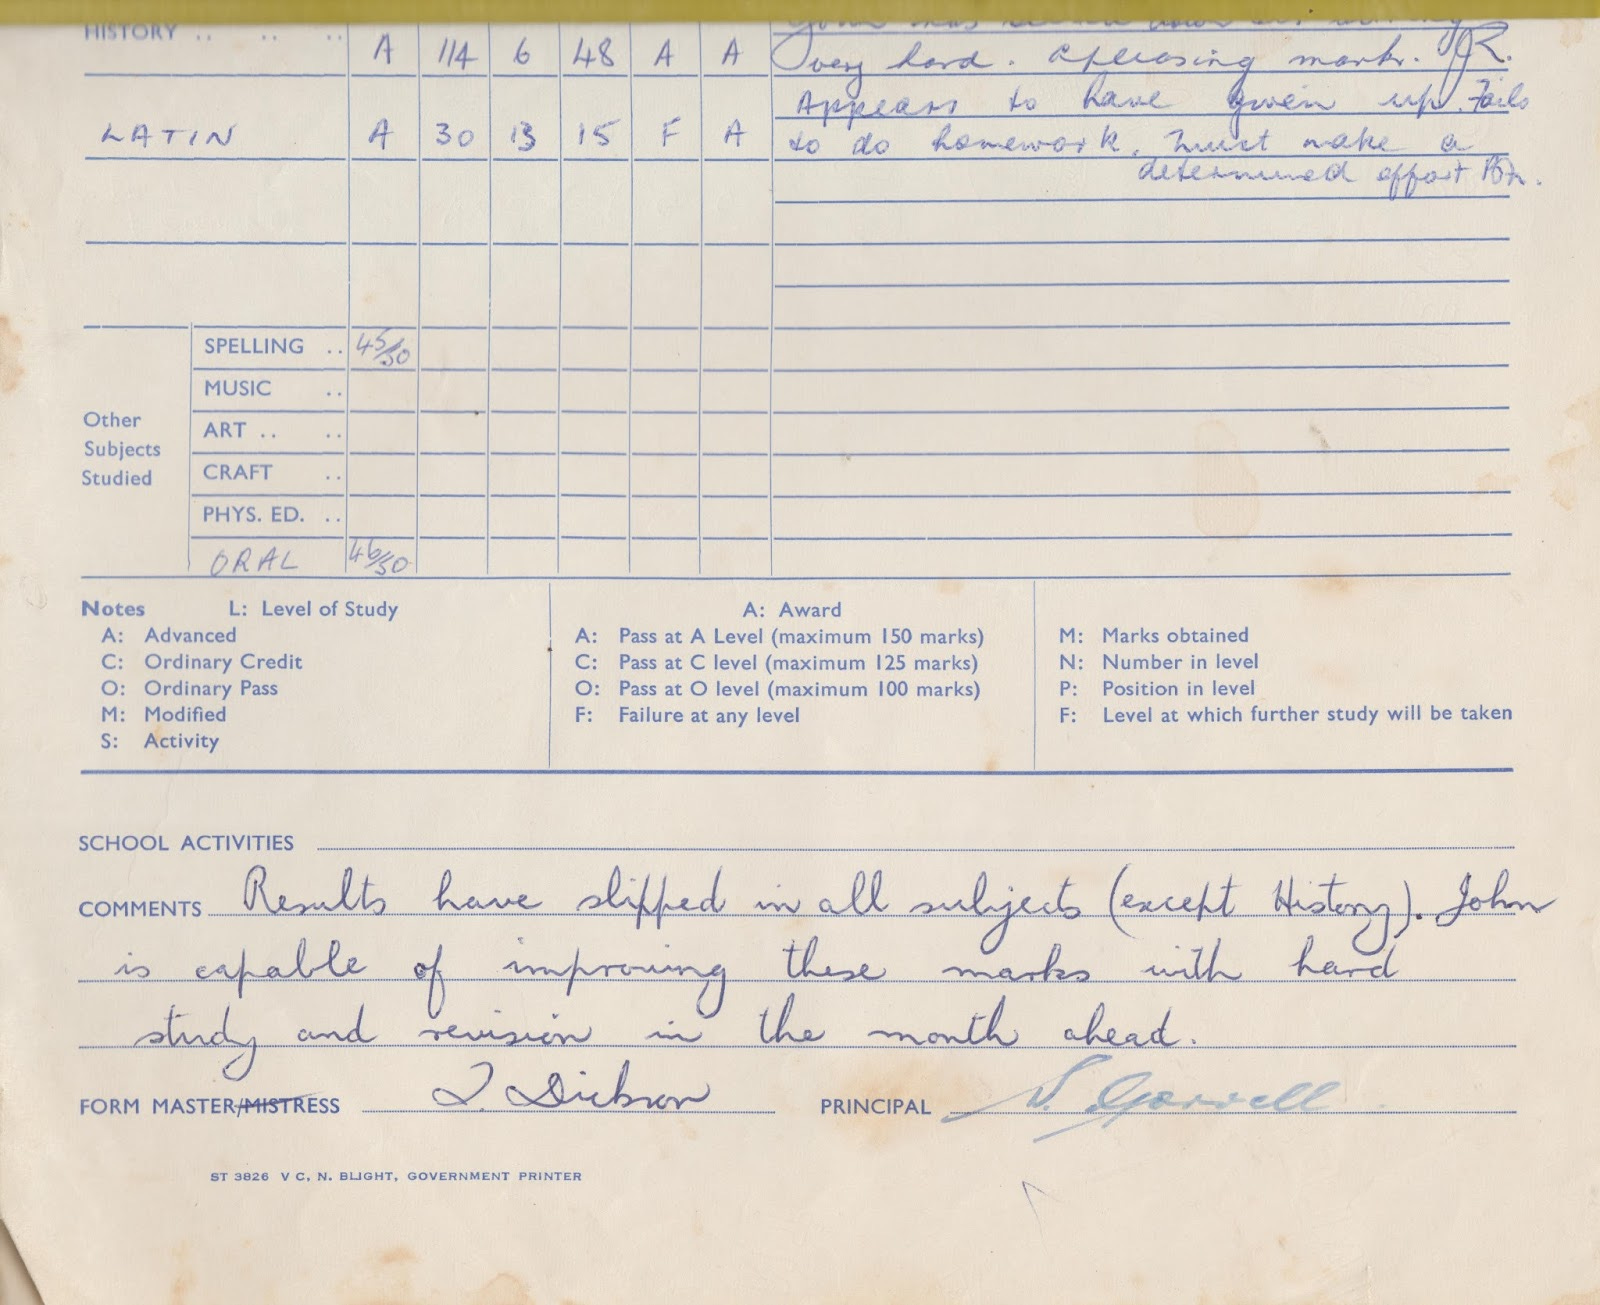 HISTORY .. .. .. A 114 6 48 A A
very hard. A pleasing mark. JR.
Appears to have given up. Fails
LATIN A 30 13 15 F A to do homework. Must make a
determined effort
Other Subjects Studied
SPELLING .. 45/50
MUSIC ..
ART .. ..
CRAFT ..
PHYS. ED. ..
ORAL 46/50
Notes L: Level of Study
A: Advanced
C: Ordinary Credit
O: Ordinary Pass
M: Modified
S: Activity
A: Award
A: Pass at A Level (maximum 150 marks)
C: Pass at C level (maximum 125 marks)
O: Pass at O level (maximum 100 marks)
F: Failure at any level
M: Marks obtained
N: Number in level
P: Position in level
F: Level at which further study will be taken
SCHOOL ACTIVITIES
COMMENTS Results have slipped in all subjects (except History). John
is capable of improving these marks with hard
study and revision in the month ahead.
FORM MASTER/MISTRESS Dickson PRINCIPAL
ST 3826 V C. N. BLIGHT, GOVERNMENT PRINTER